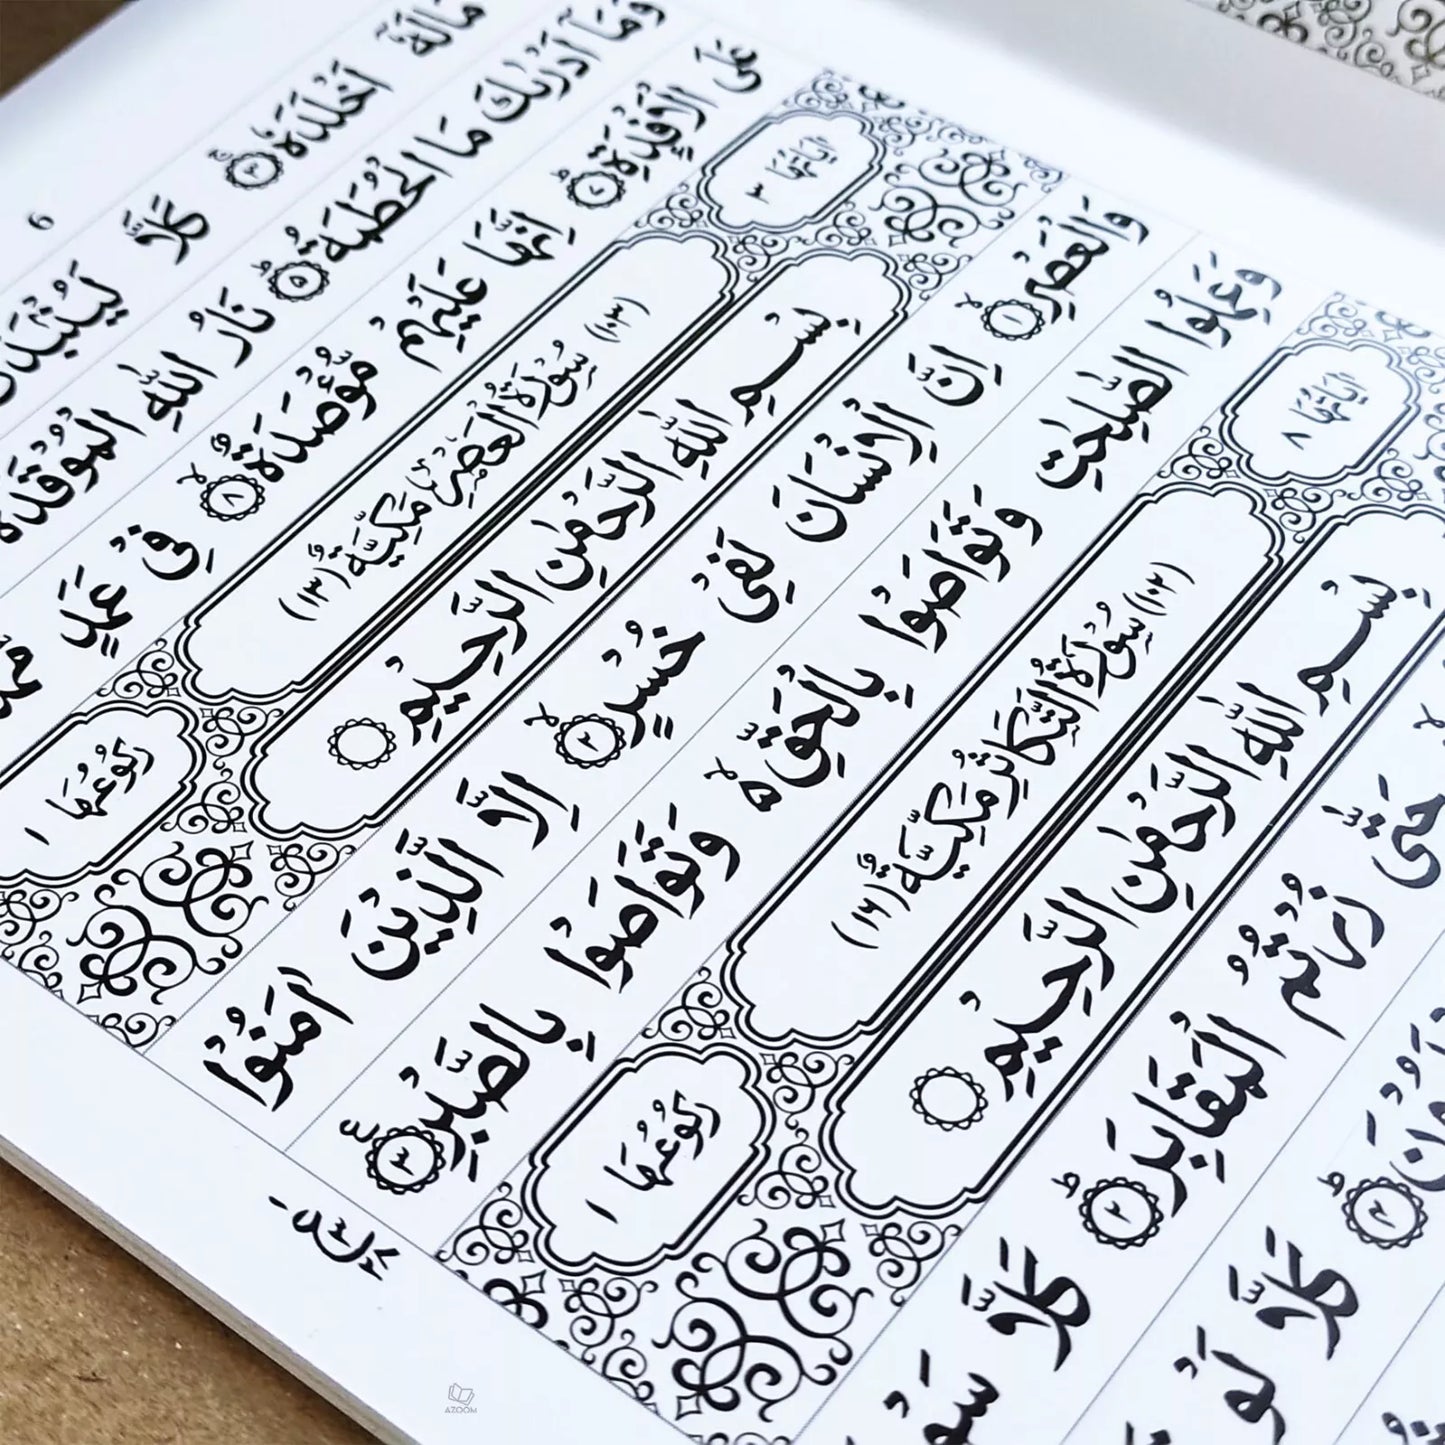 مَالَهٗۤ اَخْلَدَهٗ ۚ﴿۳﴾ كَلَّا لَيُنْۢبَذَنَّ
وَمَاۤ اَدْرٰىكَ مَا الْحُطَمَةُ ؕ﴿۵﴾ نَارُ اللّٰهِ الْمُوْقَدَةُ
عَلَى الْاَفْـِٕدَةِ ؕ﴿۷﴾ اِنَّهَا عَلَيْهِمْ مُّؤْصَدَةٌ ۙ﴿۸﴾ فِيْ عَمَدٍ
اٰيَاتُهَا ۳
(۱۰۳) سُوْرَةُ الْعَصْرِ مَكِّيَّةٌ (۱۳)
رُكُوْعُهَا ۱
بِسْمِ اللّٰهِ الرَّحْمٰنِ الرَّحِيْمِ
وَالْعَصْرِ ۙ﴿۱﴾ اِنَّ الْاِنْسَانَ لَفِيْ خُسْرٍ ۙ﴿۲﴾ اِلَّا الَّذِيْنَ اٰمَنُوْا
وَعَمِلُوا الصّٰلِحٰتِ وَتَوَاصَوْا بِالْحَقِّ ۙ۬ وَتَوَاصَوْا بِالصَّبْرِ ﴿۳﴾
اٰيَاتُهَا ۸
(۱۰۲) سُوْرَةُ التَّكَاثُرِ مَكِّيَّةٌ (۱۶)
رُكُوْعُهَا ۱
بِسْمِ اللّٰهِ الرَّحْمٰنِ الرَّحِيْمِ
حَتّٰى زُرْتُمُ الْمَقَابِرَ ؕ﴿۲﴾ كَلَّا سَوْفَ
كَلَّا لَوْ
AZOOM